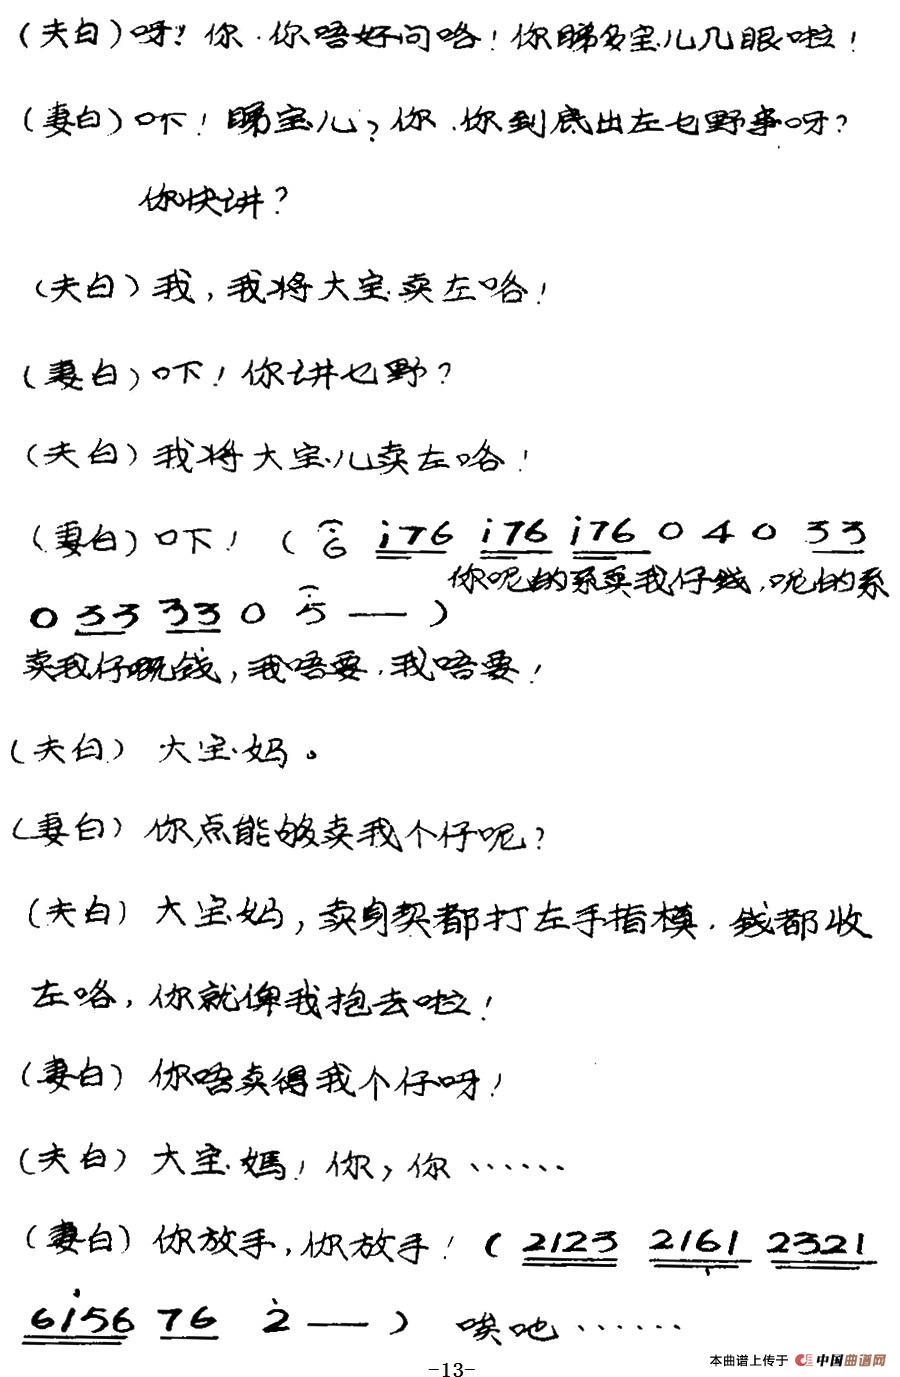 (夫白)呀!你.你唔好问咯!你睇多宝儿几眼啦!
(妻白)吓!睇宝儿?你.你到底出左乜野事呀?
你快讲?
(夫白)我,我将大宝卖左咯!
(妻白)吓!你讲乜野?
(夫白)我将大宝儿卖左咯!
(妻白)吓!(6 i76 i76 i76 0 4 0 33
你呢的系卖我仔钱,呢的系
0 33 33 0 5 —— )
卖我仔嘅钱,我唔要.我唔要!
(夫白) 大宝妈。
(妻白) 你点能够卖我个仔呢?
(夫白) 大宝妈,卖身契都打左手指模.钱都收
左咯,你就俾我抱去啦!
(妻白) 你唔卖得我个仔呀!
(夫白) 大宝.媽!你,你……
(妻白) 你放手,你放手!( 2123 2161 2321
6i56 76 2 —— ) 唉吔……
本曲谱上传于 中国曲谱网
-13-